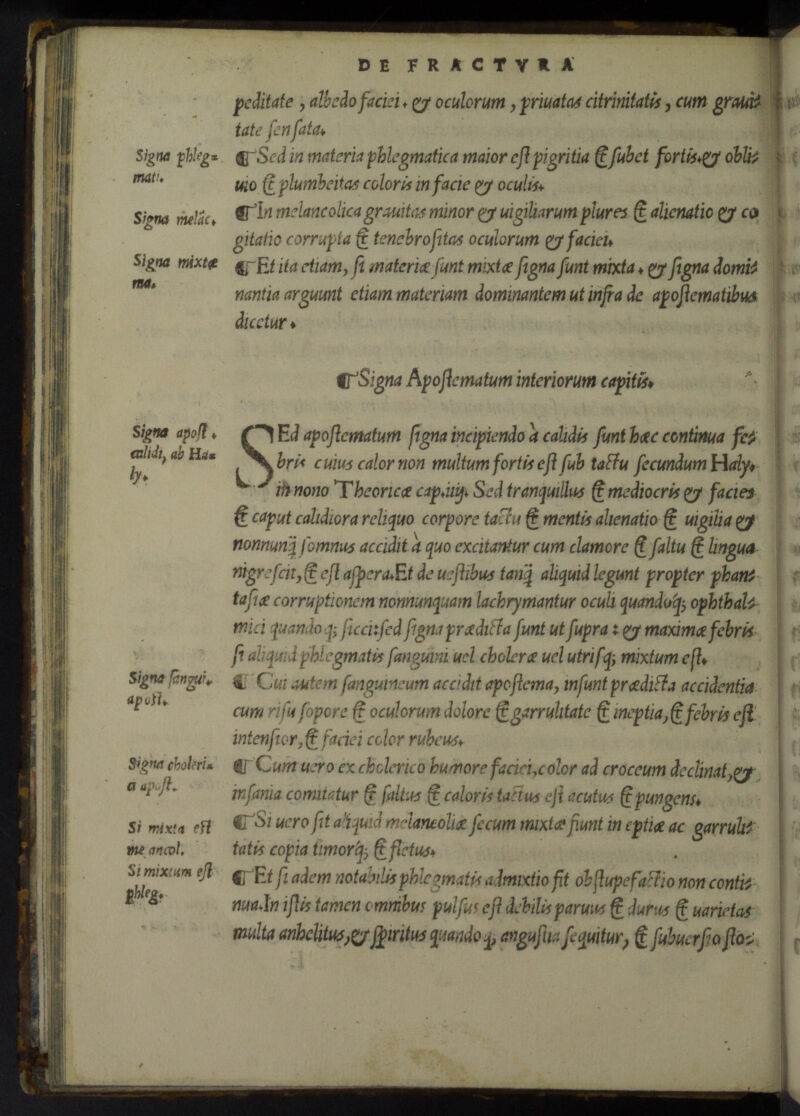 DE FRACTVRA
peditate, albedo faciei. & oculorum, priuatas citrinitatis, cum graui-
tate sensata.
Signa phleg-
mati.
¶ Sed in materia phlegmatica maior est pigritia & subet fortis.& obli-
uio & plumbeitas coloris in facie & oculis.
Signa melāc.
¶ In melancolica grauitas minor & uigiliarum plures & alienatio & co
gitatio corrupta & tenebrositas oculorum & faciei.
Signa mixtæ
ma.
¶ Et ita etiam, si materiæ sunt mixtæ signa sunt mixta. & signa domi-
nantia arguunt etiam materiam dominantem ut infra de apostematibus
dicetur.
¶ Signa Apostematum interiorum capitis.
Signa apost.
calidi, ab Ha-
ly.
SEd apostematum signa incipiendo à calidis sunt hæc continua fe-
bris cuius calor non multum fortis est sub tactu secundum Haly.
in nono Theoricæ cap.iiij. Sed tranquillus & mediocris & facies
& caput calidiora reliquo corpore tactu & mentis alienatio & uigilia &
nonnunq̃ somnus accidit à quo excitantur cum clamore & saltu & lingua
nigrescit,& est aspera.Et de uestibus tanq̃ aliquid legunt propter phan-
tasiæ corruptionem nonnunquam lachrymantur oculi quandoq; ophthal-
mici quando q; sicci:sed signa prædicta sunt ut supra : & maximæ febris
si aliquid phlegmatis sanguini uel choleræ uel utrisq; mixtum est.
Signa sangui.
apost.
¶ Cui autem sanguineum accidit apostema, insunt prædicta accidentia
cum risu sopore & oculorum dolore & garrulitate & ineptia,& febris est
intensior,& faciei color rubeus.
Signa choleri-
ci apost.
¶ Cum uero ex cholerico humore faciei,color ad croceum declinat,&
insania comitatur & saltus & caloris tactus est acutus & pungens.
Si mixta est
me ancol.
¶ Si uero sit aliquid melancoliæ secum mixtæ fiunt in eptiæ ac garruli-
tatis copia timorq; & fletus.
Si mixtum est
phleg.
¶ Et si adem notabilis phlegmatis admixtio fit obstupefactio non conti-
nua.In istis tamen omnibus pulsus est debilis paruus & durus & uarietas
multa anhelitus,& spiritus quando q; angustia sequitur, & subuersio sto-